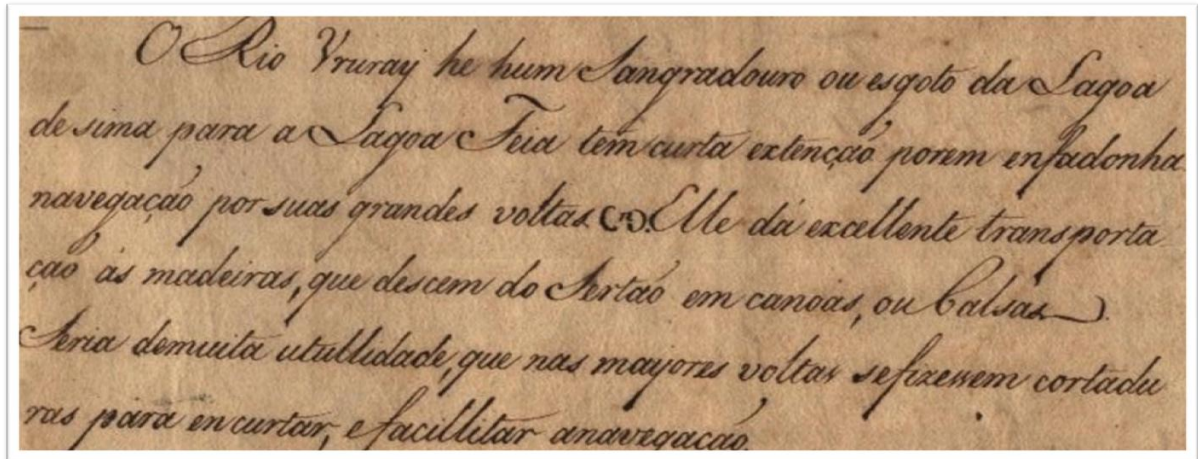 O Rio Vruray he hum Sangradouro ou esgoto da Lagoa
de sima para a Lagoa Feia tem curta extenção porem enfadonha
navegação por suas grandes voltas (m). Elle dá excellente transporta
ção ás madeiras, que descem do Sertão em canoas, ou Balsas.
Seria demuita utullidade, que nas mayores voltas sefizessem cortadu
ras para encurtar, e facillitar anavegação.